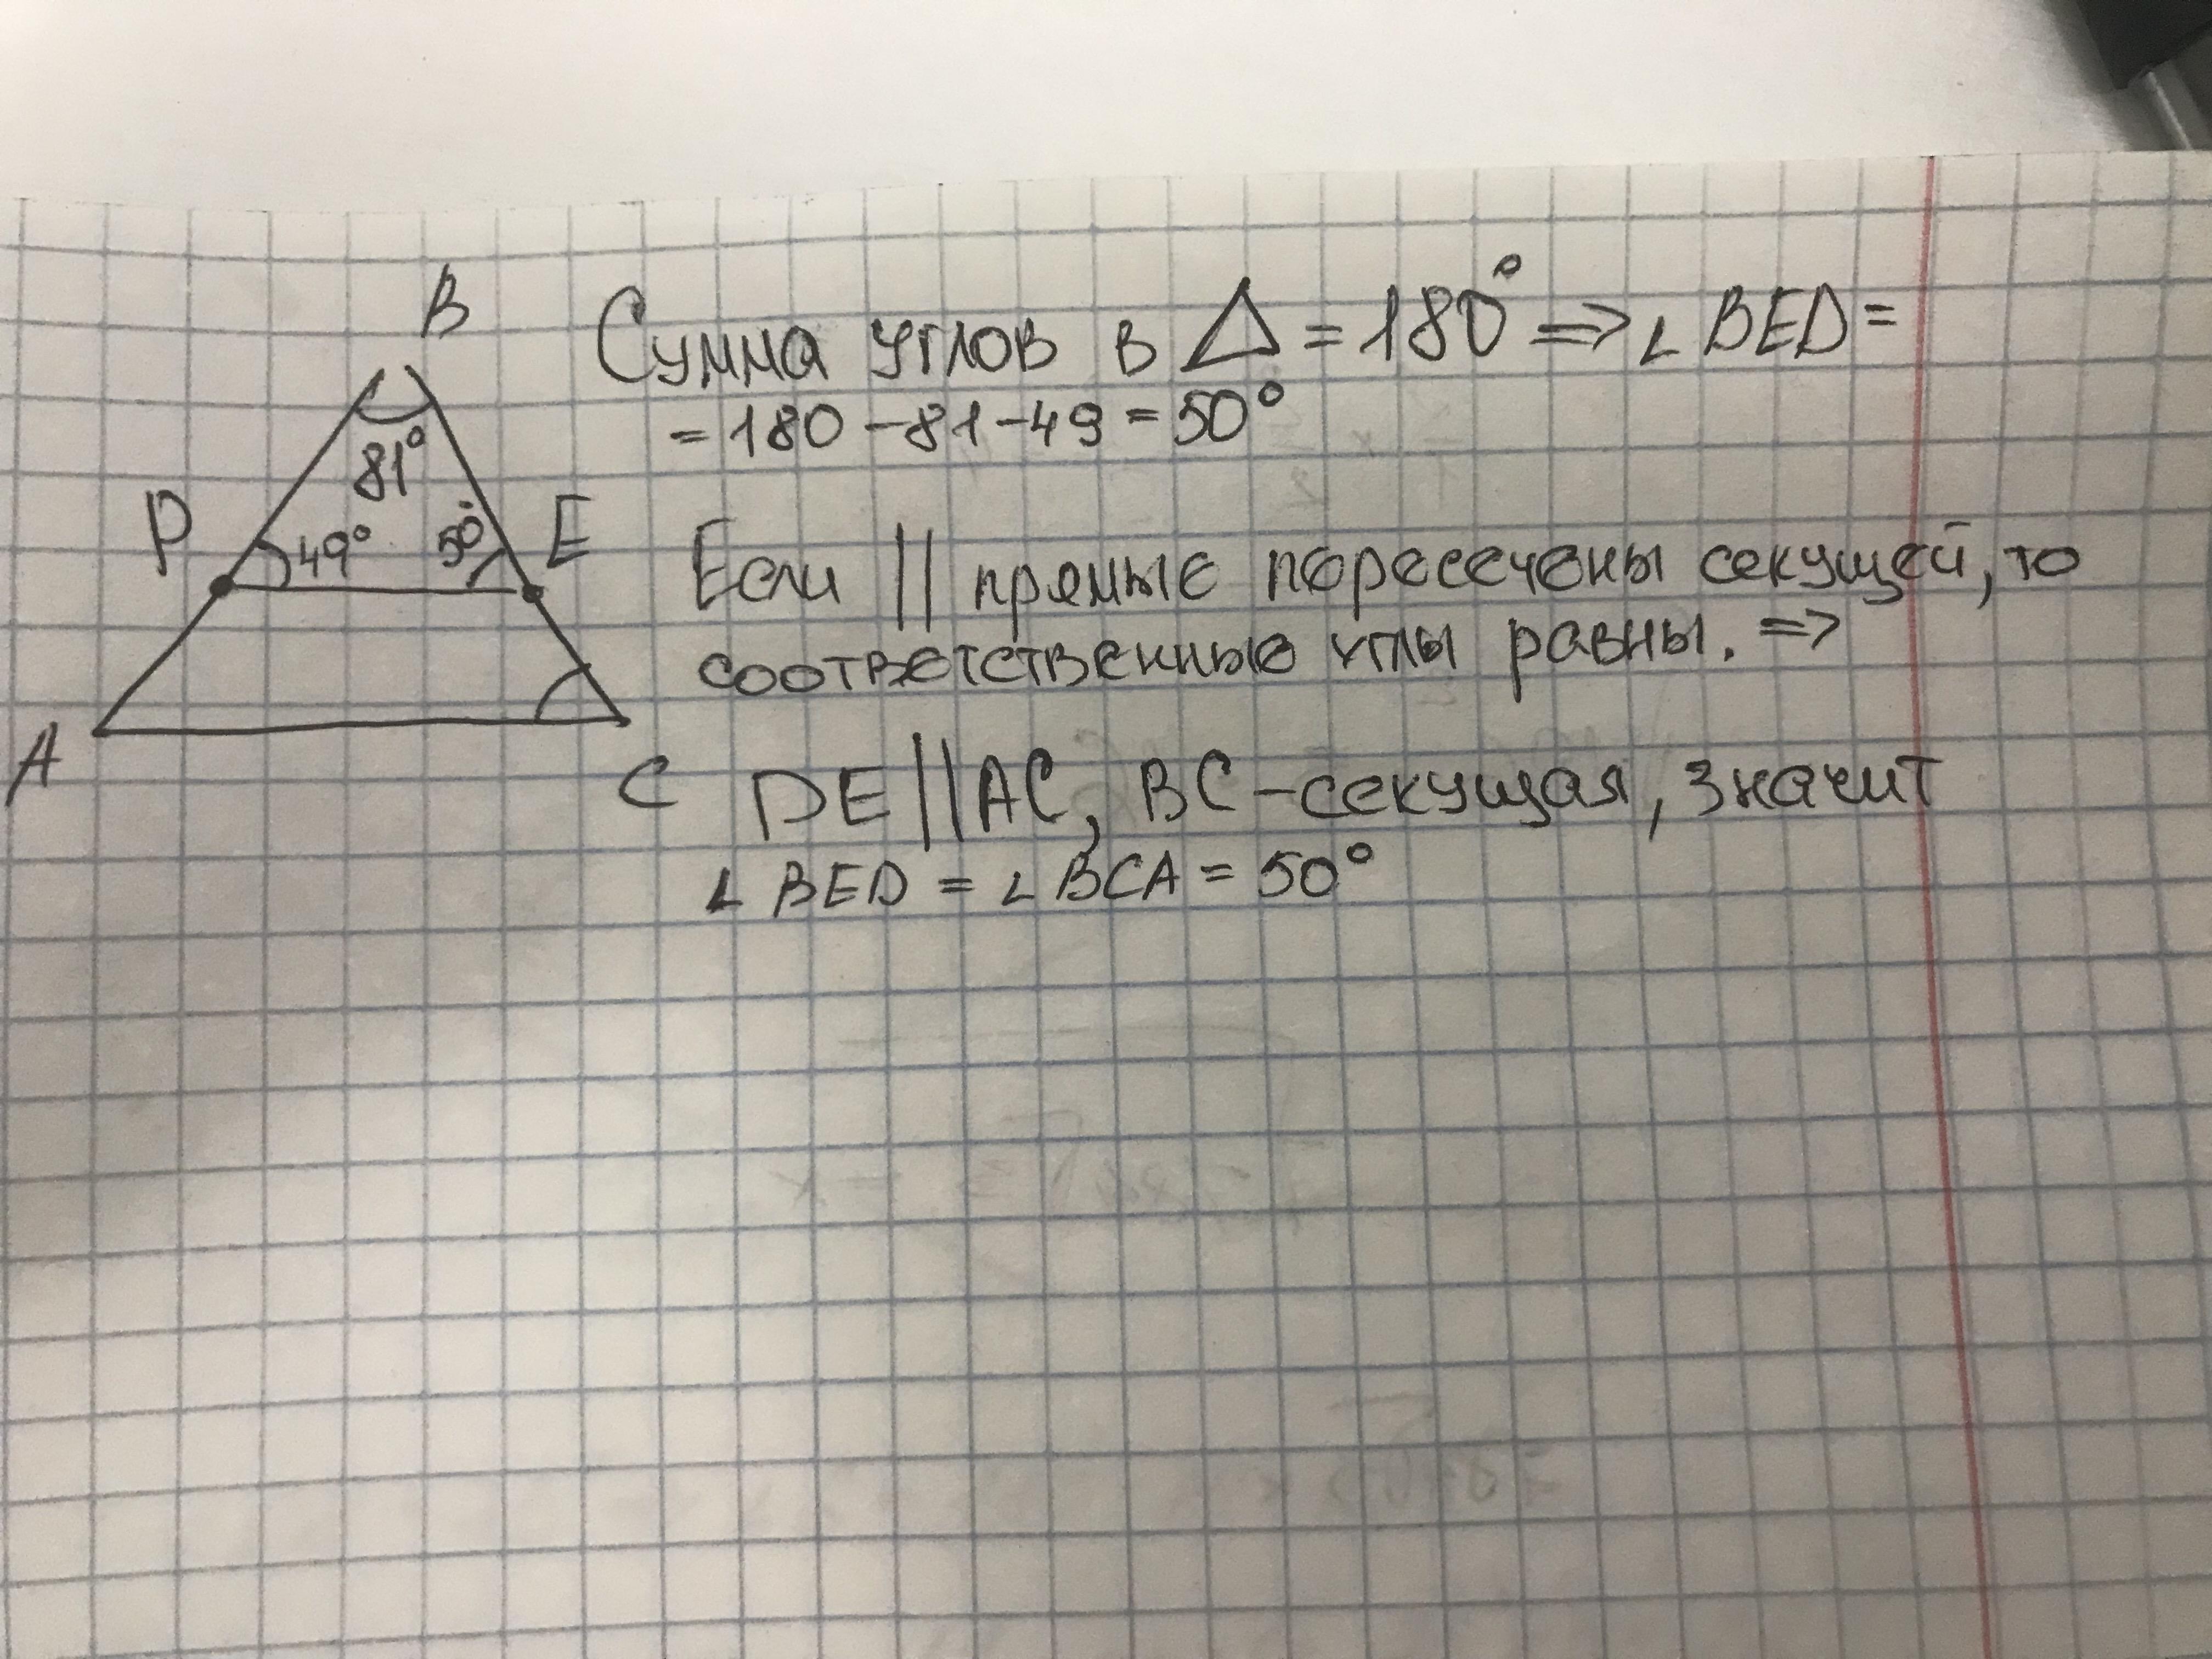 B
Сумма углов в △ = 180° => ∠ BED =
= 180 - 81 - 49 = 50°
81°
D
49°
50°
E
Если || прямые пересечены секущей, то
соответственные углы равны. =>
A
C
DE || AC, BC - секущая, значит
∠ BED = ∠ BCA = 50°